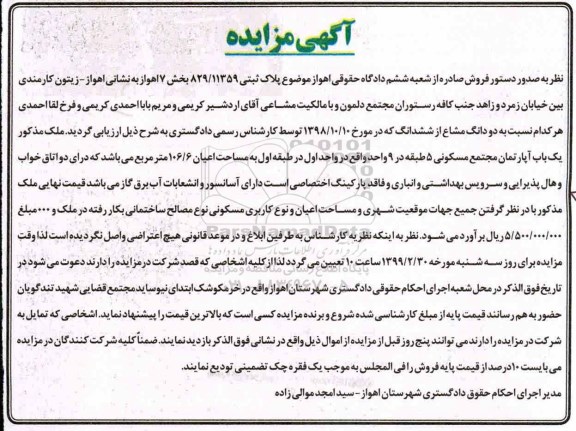 آگهی مزایده
نظر به صدور دستور فروش صادره از شعبه ششم دادگاه حقوقی اهواز موضوع پلاک ثبتی ۸۲۹/۱۱۳۵۹ بخش ۷ اهواز به نشانی اهواز - زیتون کارمندی
بین خیابان زمرد و زاهد جنب کافه رستوران مجتمع دلمون و با مالکیت مشاعی آقای اردشیر کریمی و مریم بابا احمدی کریمی و فرخ لقا احمدی
هر کدام نسبت به دو دانگ مشاع از ششدانگ که در مورخ ۱۳۹۸/۱۰/۱۰ توسط کارشناس رسمی دادگستری به شرح ذیل ارزیابی گردید. ملک مذکور
یک باب آپارتمان مجتمع مسکونی ۵ طبقه در ۹ واحد واقع در واحد اول در طبقه اول به مساحت اعیان ۱۰۶/۶ متر مربع می باشد که درای دو اتاق خواب
و هال پذیرایی و سرویس بهداشتی و انباری و فاقد پارکینگ اختصاصی است دارای آسانسور و انشعابات آب برق گاز می باشد قیمت نهایی ملک
مذکور با در نظر گرفتن جمیع جهات موقعیت شهری و مساحت اعیان و نوع کاربری مسکونی نوع مصالح ساختمانی بکار رفته در ملک و ۰۰۰ مبلغ
۵/۵۰۰/۰۰۰/۰۰۰ ریال برآورد می شود. نظر به اینکه نظریه کارشناسی به طرفین ابلاغ و در موعد قانونی هیچ اعتراضی واصل نگردیده است لذا وقت
مزایده برای روز سه شنبه مورخه ۱۳۹۹/۲/۳۰ ساعت ۱۰ تعیین می گردد لذا از کلیه اشخاصی که قصد شرکت در مزایده را دارند دعوت می شود در
تاریخ فوق الذکر در محل شعبه اجرای احکام حقوقی دادگستری شهرستان اهواز واقع در خرمکوشک ابتدای نیوساید مجتمع قضایی شهید تندگویان
حضور به هم رسانند قیمت پایه از مبلغ کارشناسی شده شروع و برنده مزایده کسی است که بالاترین قیمت را پیشنهاد نماید. اشخاصی که تمایل به
شرکت در مزایده را دارند می توانند پنج روز قبل از مزایده از اموال ذیل واقع در نشانی فوق الذکر بازدید نمایند. ضمناً کلیه شرکت کنندگان در مزایده
می بایست ۱۰ درصد از قیمت پایه فروش را فی المجلس به موجب یک فقره چک تضمینی تودیع نمایند.
مدیر اجرای احکام حقوق دادگستری شهرستان اهواز - سید امجد موالی زاده